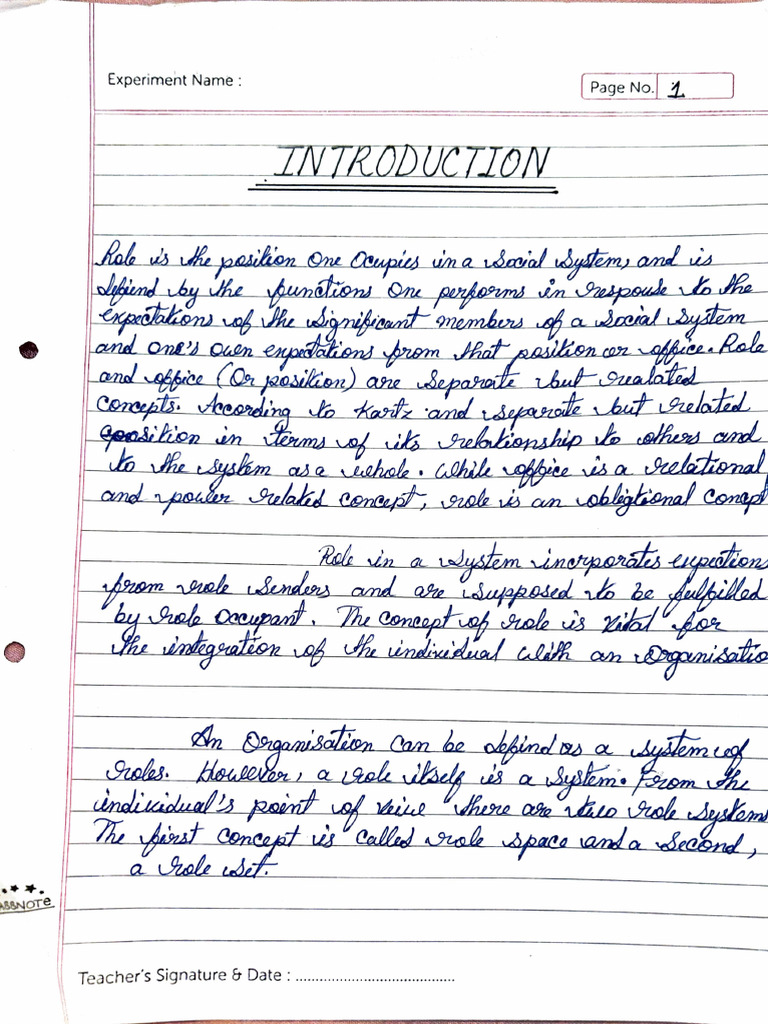 Experiment Name :
Page No. 1
INTRODUCTION
Role is the position One Ocupies in a Social System, and is
defiend by the functions One performs in response to the
expectations of the significant members of a Social System
and one's own expectations from that position or office. Role
and office (Or position) are Separate but realated
concepts. According to Kartz and separate but related
position in terms of its relationship to others and
to the system as a whole. While office is a relational
and power related concept, role is an obligtional concept
Role in a system incorporates expections
from role senders and are supposed to be fulfilled
by role Occupant. The concept of role is vital for
the integration of the individual with an Organisatio
An Organisation can be defind as a system of
roles. However, a role itself is a system. From the
individual's point of veiw there are two role systems
The first concept is called role space and a second,
a role set.
ASSNOTe
Teacher's Signature & Date : ......................................